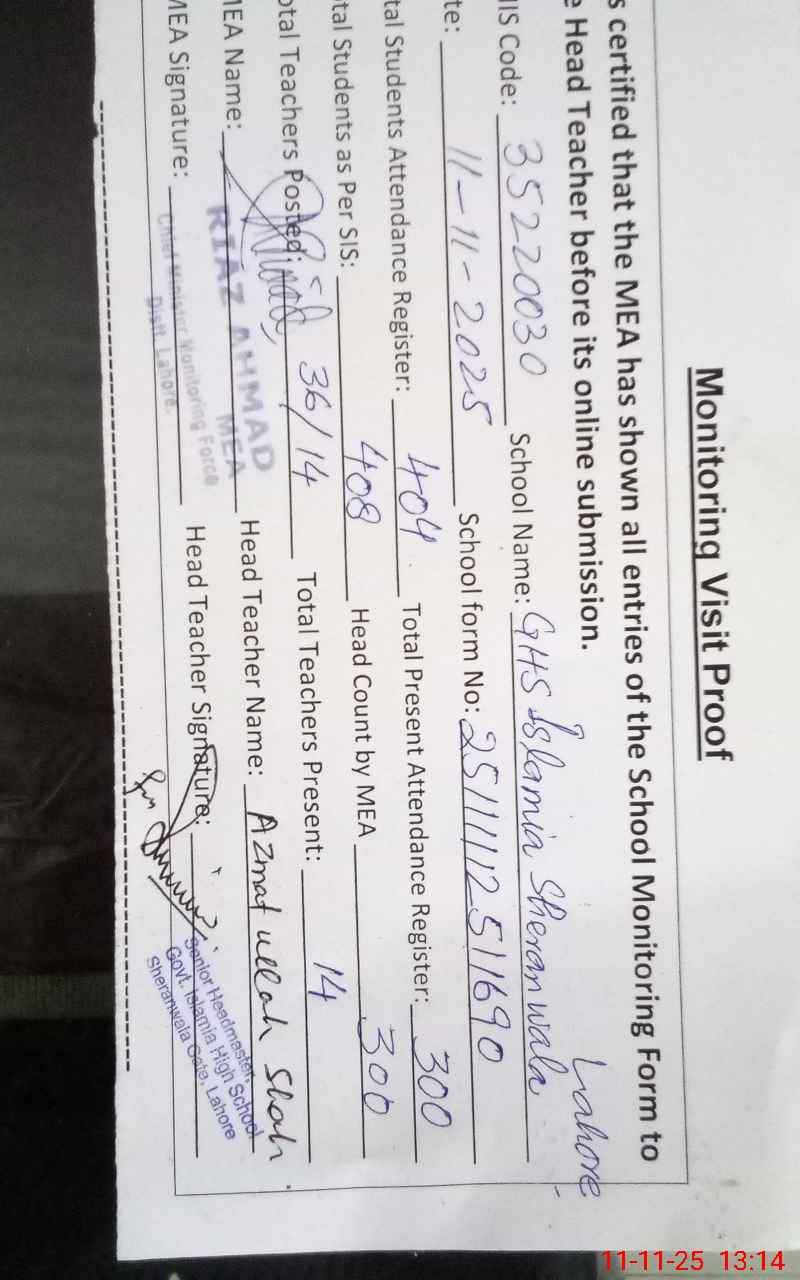 Monitoring Visit Proof
s certified that the MEA has shown all entries of the School Monitoring Form to
e Head Teacher before its online submission.
IIS Code: 35220030 School Name: GHS Islamia Sheranwala Lahore
te: 11-11-2025 School form No: 2511112511690
tal Students Attendance Register: 404 Total Present Attendance Register: 300
tal Students as Per SIS: 408 Head Count by MEA 300
otal Teachers Posted: 36/14 Total Teachers Present: 14
MEA Name: RIAZ AHMAD Head Teacher Name: Azmat ullah Shah
MEA
MEA Signature: Head Teacher Signature:
Chief Minister Monitoring Force
Distt. Lahore.
Senior Headmaster,
Govt. Islamia High School
Sheranwala Gate, Lahore
11-11-25 13:14